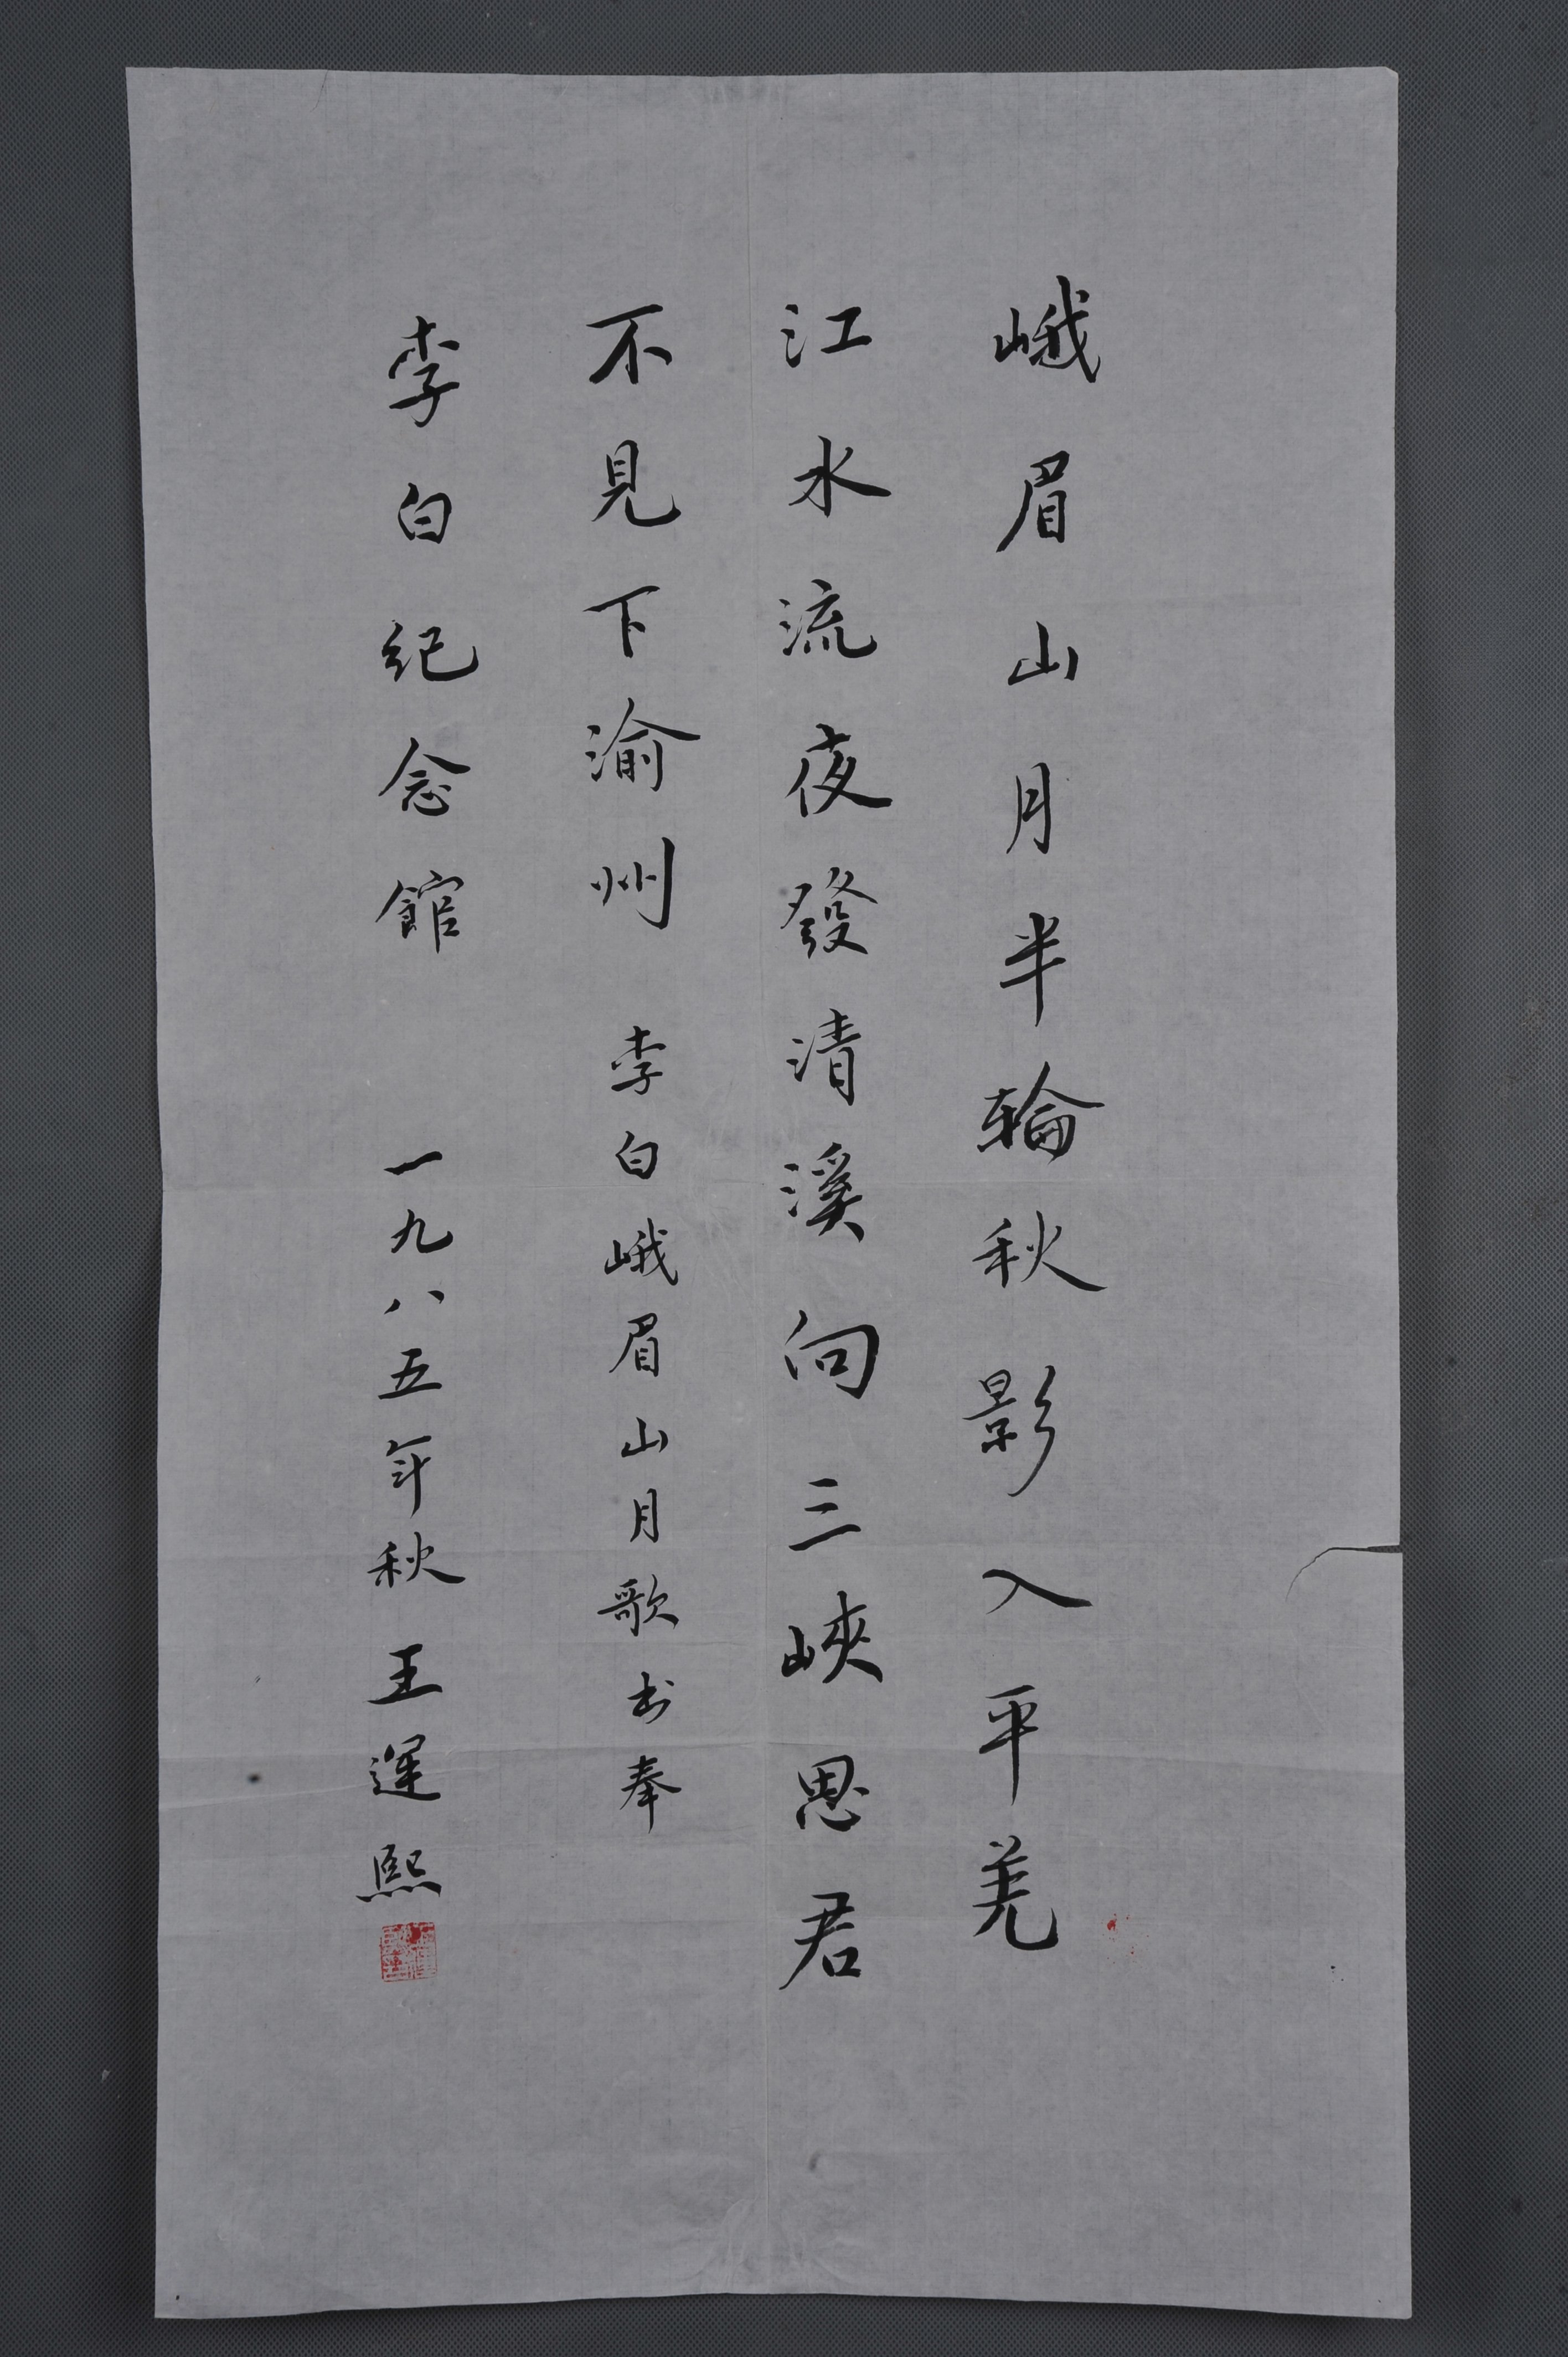 峨眉山月半輪秋影入平羌
江水流夜發清溪向三峽思君
不見下渝州 李白峨眉山月歌书奉
李白紀念館 一九八五年秋王運熙